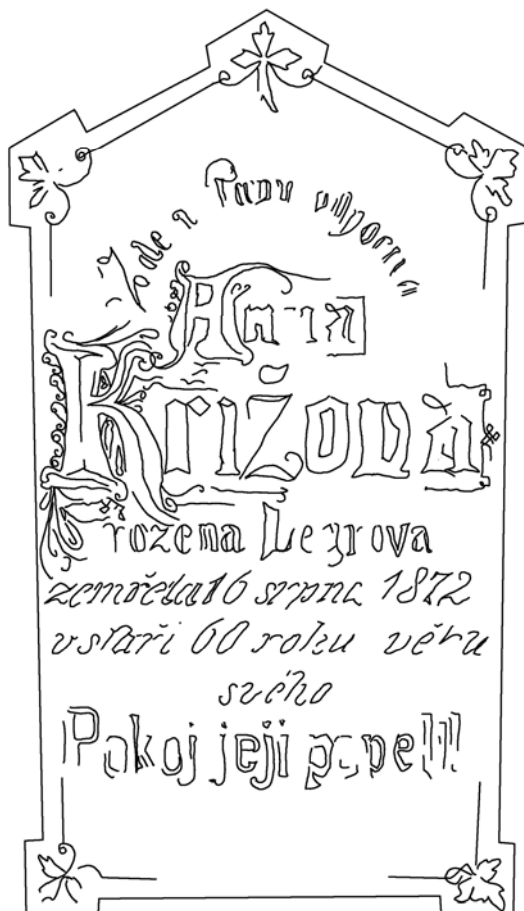 Zde v Pánu odpočívá
Anna
Křížová
rozena Legrova
zemřela 16 srpna 1872
v staří 60 roku věku
svého
Pokoj její popeli!